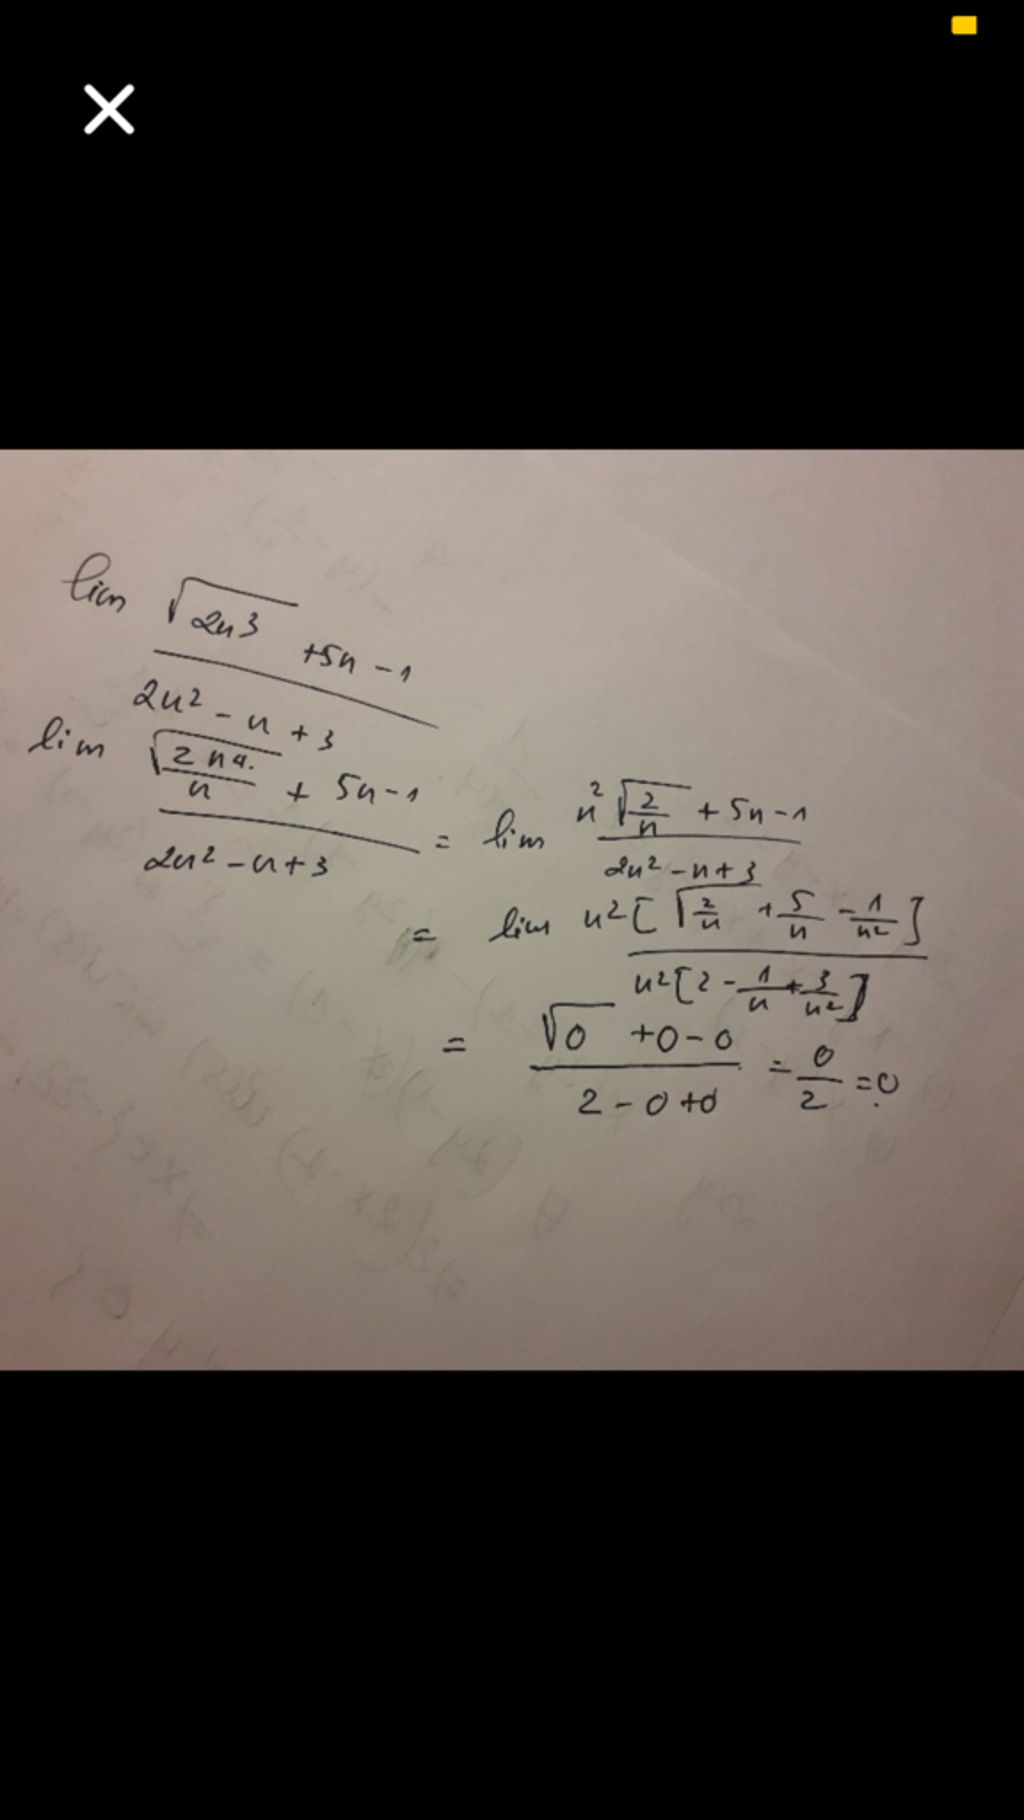 lim (√(2n³) + 5n - 1) / (2n² - n + 3)
lim (√(2n⁴/n) + 5n - 1) / (2n² - n + 3) = lim (n²√(2/n) + 5n - 1) / (2n² - n + 3)
= lim n²[√(2/n) + 5/n - 1/n²] / n²[2 - 1/n + 3/n²]
= (√0 + 0 - 0) / (2 - 0 + 0) = 0/2 = 0